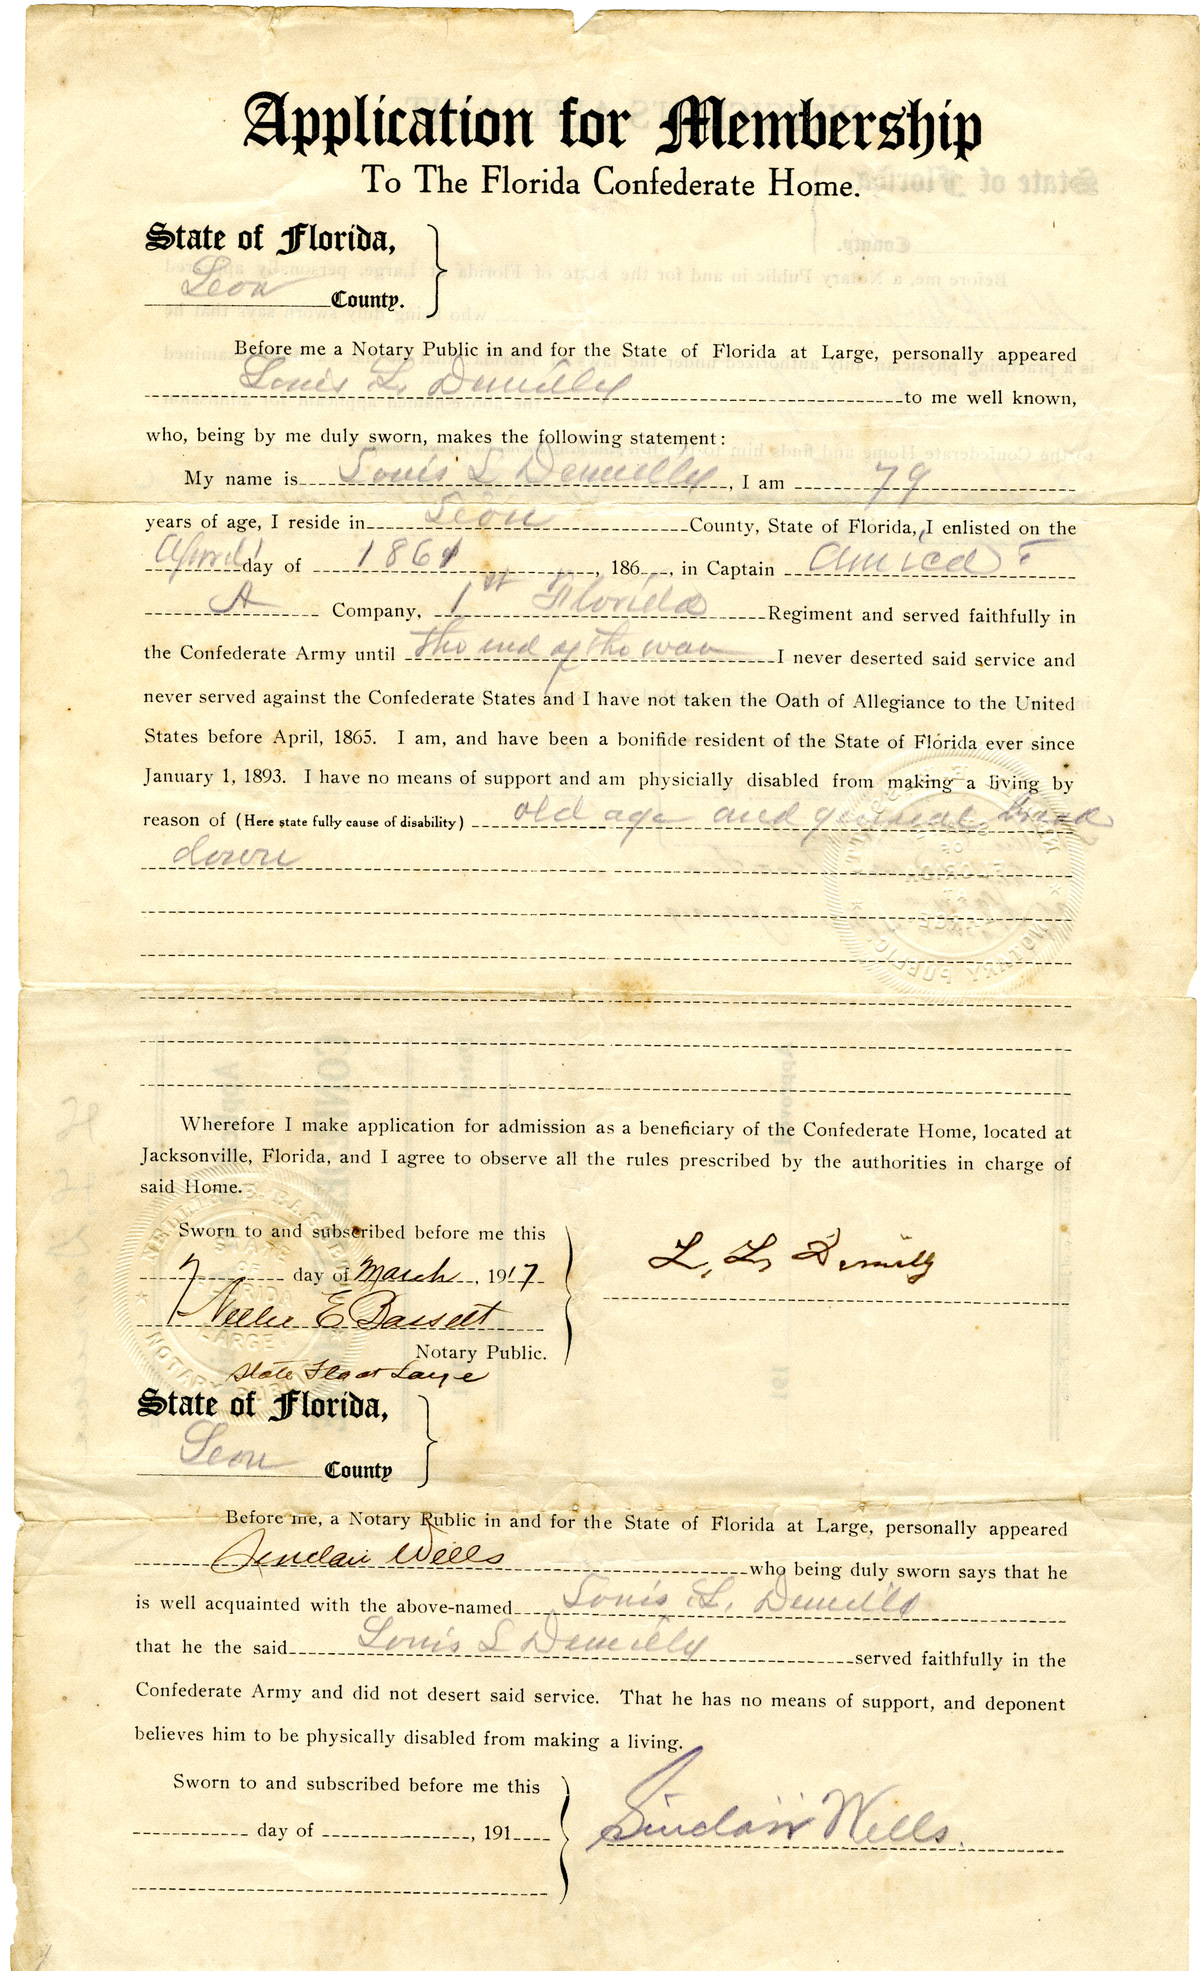 Application for Membership
To The Florida Confederate Home.
State of Florida,
Leon County.
Before me a Notary Public in and for the State of Florida at Large, personally appeared
Louis L. Demilly to me well known,
who, being by me duly sworn, makes the following statement:
My name is Louis L Demilly, I am 79
years of age, I reside in Leon County, State of Florida, I enlisted on the
April day of 1861, 186 , in Captain
A Company, 1st Florida Regiment and served faithfully in
the Confederate Army until the end of the war I never deserted said service and
never served against the Confederate States and I have not taken the Oath of Allegiance to the United
States before April, 1865. I am, and have been a bonifide resident of the State of Florida ever since
January 1, 1893. I have no means of support and am physicially disabled from making a living by
reason of (Here state fully cause of disability) old age and general break
down
Wherefore I make application for admission as a beneficiary of the Confederate Home, located at
Jacksonville, Florida, and I agree to observe all the rules prescribed by the authorities in charge of
said Home.
Sworn to and subscribed before me this
7 day of March, 1917
L. L. Demilly
Nellie E Bassett
Notary Public.
State Fla at Large
State of Florida,
Leon County
Before me, a Notary Public in and for the State of Florida at Large, personally appeared
Sinclair Wells who being duly sworn says that he
is well acquainted with the above-named Louis L. Demilly
that he the said Louis L Demilly served faithfully in the
Confederate Army and did not desert said service. That he has no means of support, and deponent
believes him to be physically disabled from making a living.
Sworn to and subscribed before me this
day of , 191
Sinclair Wells.